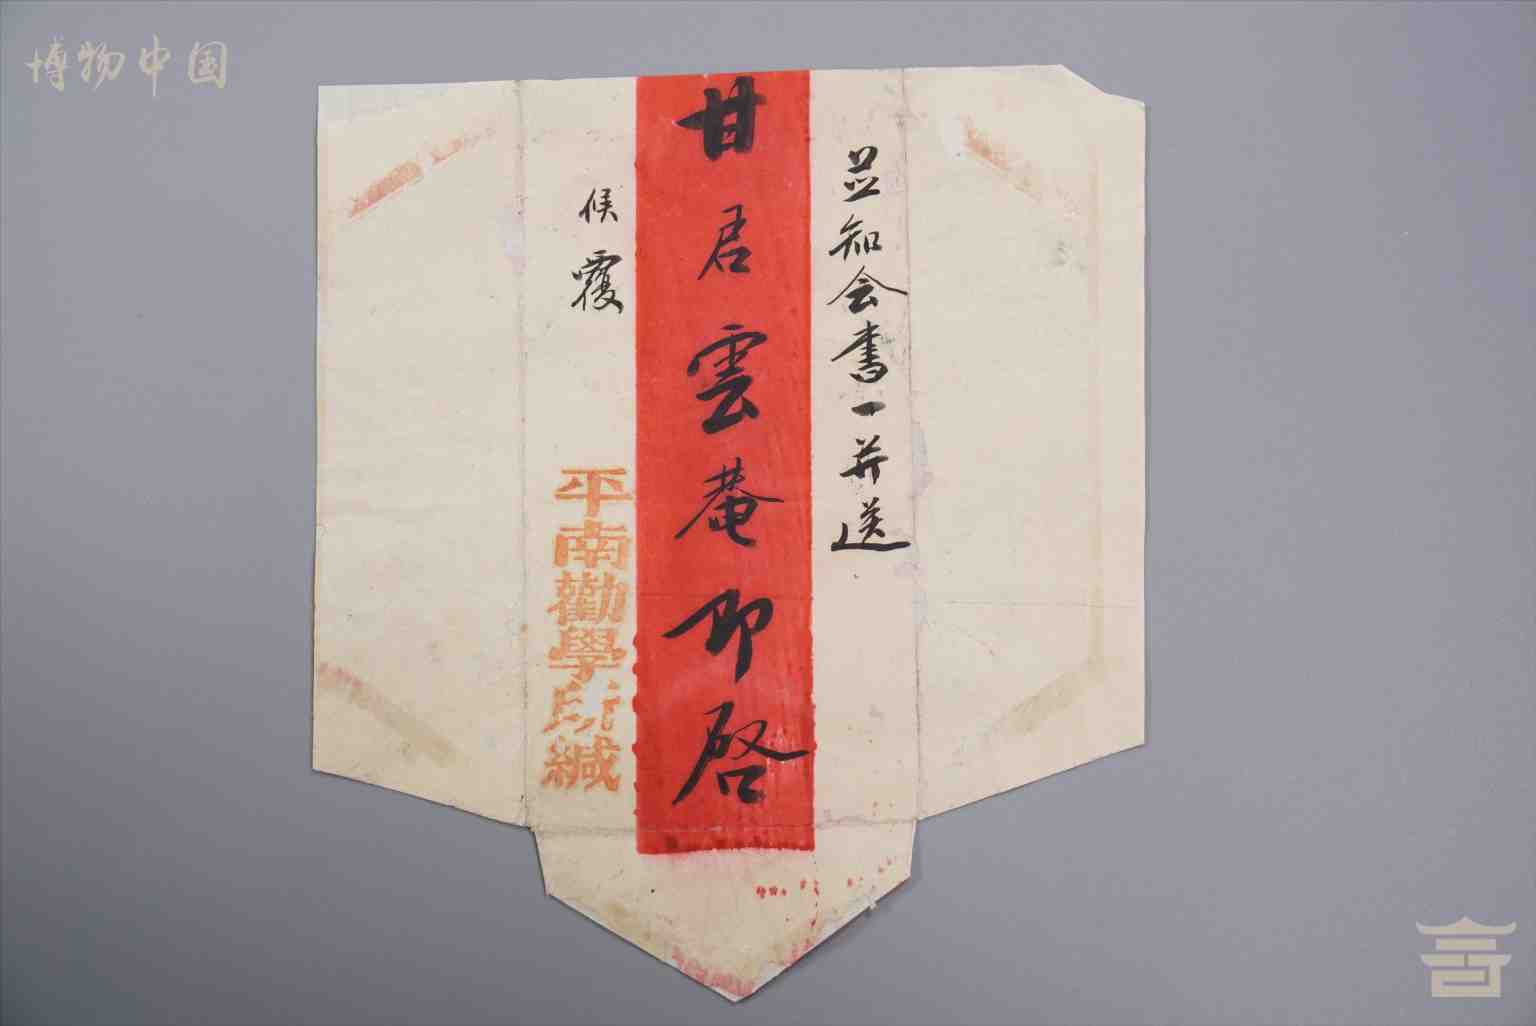 博物中国
並知会書一并送
甘君雲菴即啓
候覆
平南勸學所緘